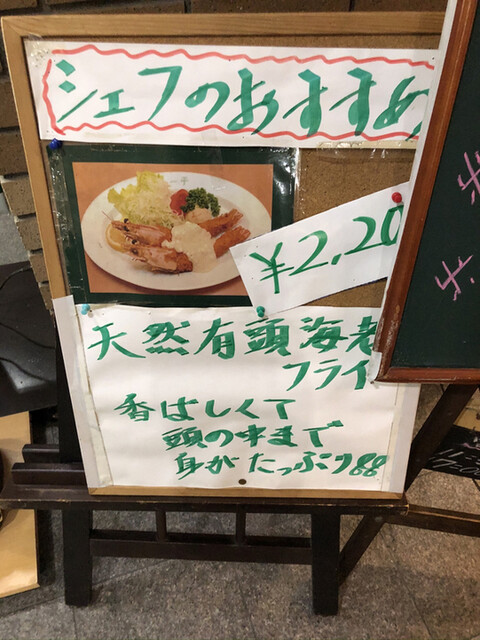 シェフのおすすめ
¥2,20
天然有頭海老
フライ
香ばしくて
頭の中まで
身がたっぷり